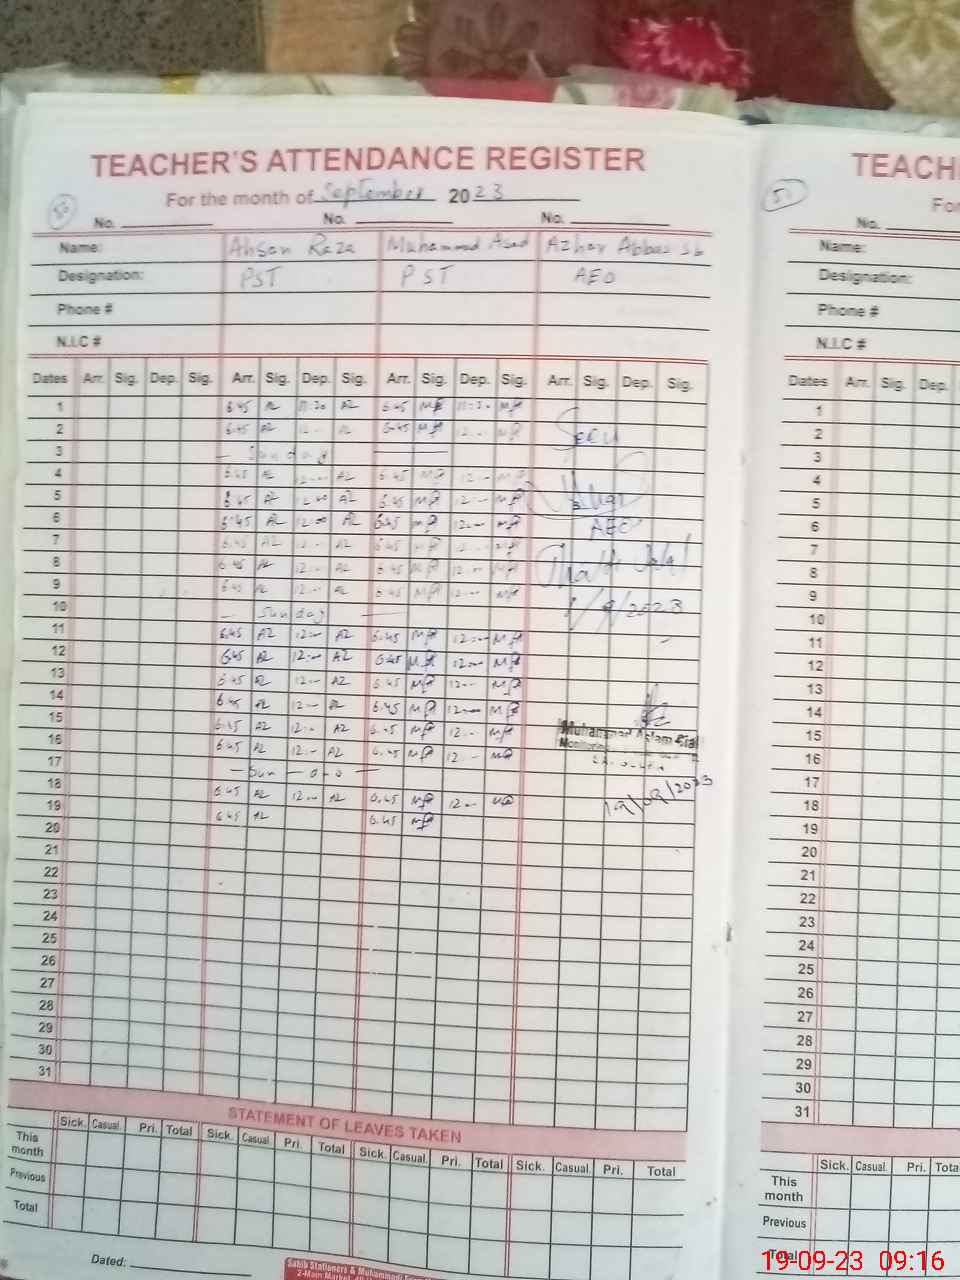 TEACHER'S ATTENDANCE REGISTER
For the month of September 2023
50
No. No. No.
Name: Ahsan Raza Muhammad Asad Azhar Abbas Sb
Designation: PST PST AEO
Phone #
N.I.C #
Dates Arr. Sig. Dep. Sig. Arr. Sig. Dep. Sig. Arr. Sig. Dep. Sig. Arr. Sig. Dep. Sig.
1 6.45 AZ 11:30 AZ 6.45 11:30
2 6.45 AZ 12:- AZ 6.45 12:- Seen
3 - Sunday -
4 6.45 AZ 12:- AZ 6.45 12:-
5 6.45 AZ 12:00 AZ 6.45 12:-
6 6.45 AZ 12:00 AZ 6.45 12:- AEO
7 6.45 AZ 12:- AZ 6.45 12:-
8 6.45 AZ 12:- AZ 6.45 12:-
9 6.45 AZ 12:- AZ 6.45 12:- 8/9/2023
10 - Sunday -
11 6.45 AZ 12:- AZ 6.45 12:-
12 6.45 AZ 12:- AZ 6.45 12:-
13 6.45 AZ 12:- AZ 6.45 12:-
14 6.45 AZ 12:- AZ 6.45 12:-
15 6.45 AZ 12:- AZ 6.45 12:- Muhammad Aslam
16 6.45 AZ 12:- AZ 6.45 12:- Monitoring
17 - Sun -
18 6.45 AZ 12:- AZ 6.45 12:- 19/09/2023
19 6.45 AZ 6.45
20
21
22
23
24
25
26
27
28
29
30
31
STATEMENT OF LEAVES TAKEN
Sick. Casual. Pri. Total Sick. Casual. Pri. Total Sick. Casual. Pri. Total Sick. Casual. Pri. Total
This month
Previous
Total
Dated:
Sahib Stationers & Muhammadi
2-Main Market,
TEACH
For
50
No.
Name:
Designation:
Phone #
N.I.C #
Dates Arr. Sig. Dep.
1
2
3
4
5
6
7
8
9
10
11
12
13
14
15
16
17
18
19
20
21
22
23
24
25
26
27
28
29
30
31
Sick. Casual. Pri. Total
This month
Previous
Total
19-09-23 09:16